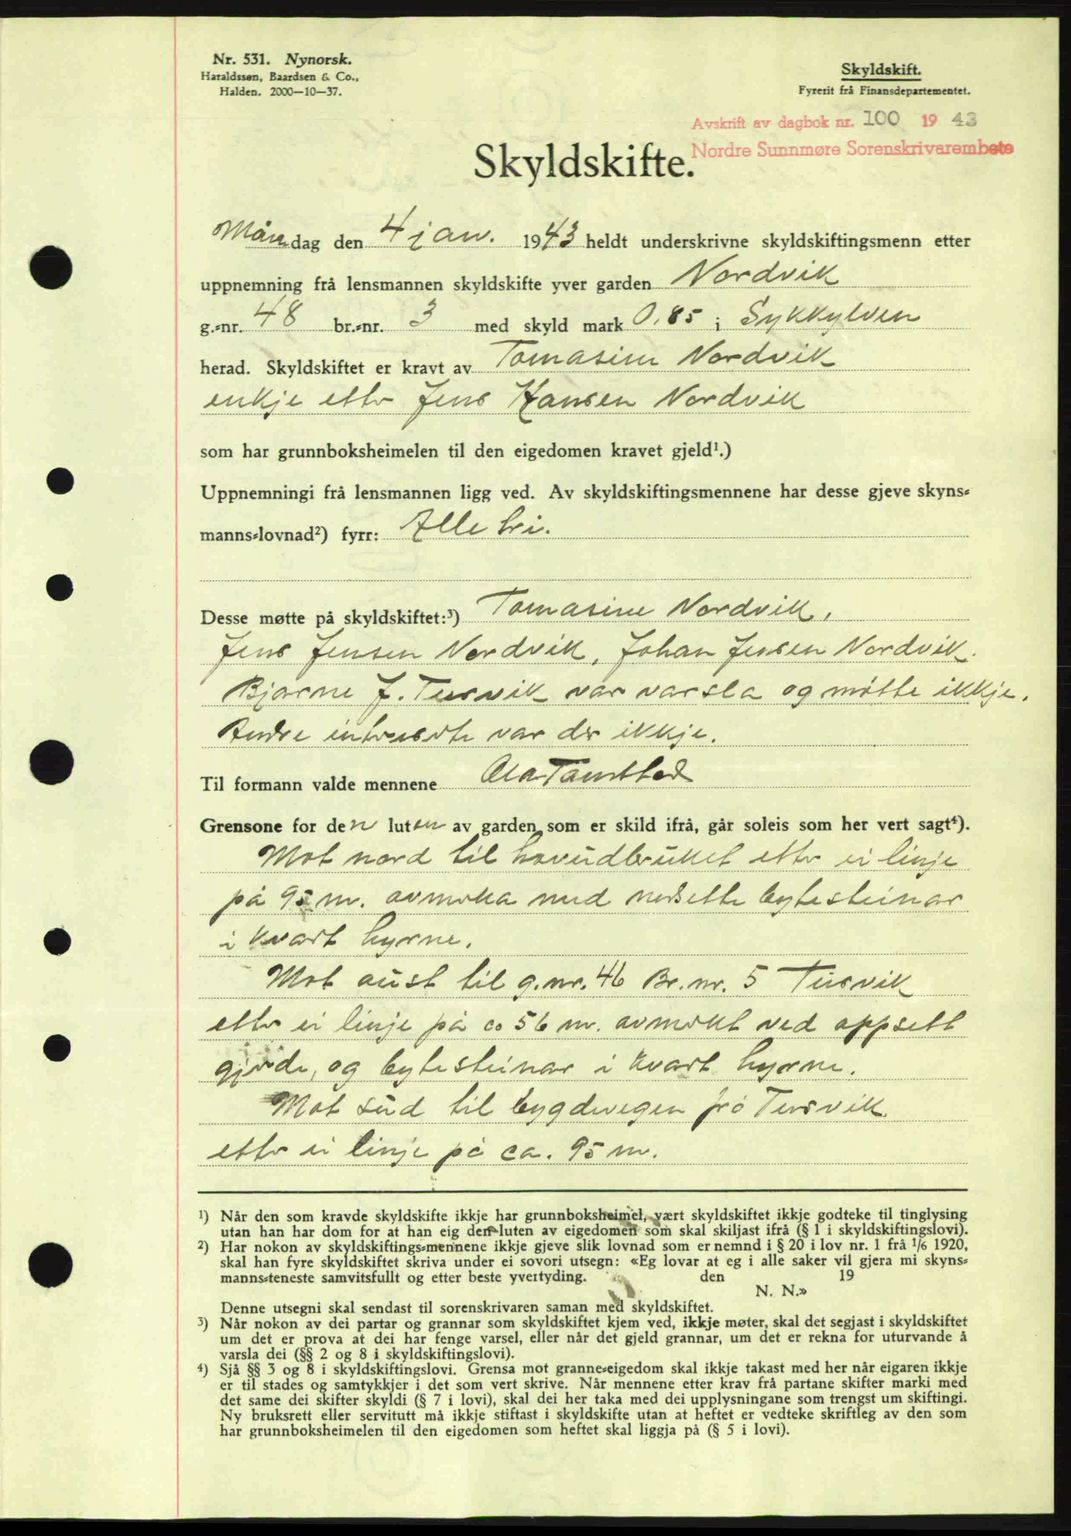 Nr. 531. Nynorsk.
Haraldssen, Baardsen & Co.,
Halden. 2000—10—37.
Skyldskift.
Fyrerit frå Finansdepartementet.
Avskrift av dagbok nr. 100 1943
Nordre Sunnmøre Sorenskrivarembete
Skyldskifte.
Måndag den 4 jan. 1943 heldt underskrivne skyldskiftingsmenn etter
uppnemning frå lensmannen skyldskifte yver garden Nordvik
g.-nr. 48 br.-nr. 3 med skyld mark 0.85 i Sykkylven
herad. Skyldskiftet er kravt av Tomasine Nordvik
enkje etter Jens Hansen Nordvik
som har grunnboksheimelen til den eigedomen kravet gjeld¹.)
Uppnemningi frå lensmannen ligg ved. Av skyldskiftingsmennene har desse gjeve skyns-
manns-lovnad²) fyrr: Alle tri.
Desse møtte på skyldskiftet:³) Tomasine Nordvik,
Jens Jensen Nordvik, Johan Jensen Nordvik.
Bjarne J. Tusvik var varsla og møtte ikkje.
Andre intreserte var der ikkje.
Til formann valde mennene Ola Tandstad
Grensone for den luten av garden som er skild ifrå, går soleis som her vert sagt⁴).
Mot nord til hovudbruket etter ei linje
på 95 m. avmerka med nedsette bytesteinar
i kvart hyrne.
Mot aust til g.nr. 46 Br. nr. 5 Tusvik
etter ei linje på ca 56 m. avmerkt ved oppsett
gjerde, og bytesteinar i kvart hyrne.
Mot sud til bygdevegen frå Tusvik
etter ei linje på ca. 95 m.
¹) Når den som kravde skyldskifte ikkje har grunnboksheimel, vært skyldskiftet ikkje godteke til tinglysing
utan han har dom for at han eig den luten av eigedomen som skal skiljast ifrå (§ 1 i skyldskiftingslovi).
²) Har nokon av skyldskiftings-mennene ikkje gjeve slik lovnad som er nemnd i § 20 i lov nr. 1 frå ¹/₆ 1920,
skal han fyre skyldskiftet skriva under ei sovori utsegn: «Eg lovar at eg i alle saker vil gjera mi skyns-
manns-teneste samvitsfullt og etter beste yvertyding. den 19
N. N.»
Denne utsegni skal sendast til sorenskrivaren saman med skyldskiftet.
³) Når nokon av dei partar og grannar som skyldskiftet kjem ved, ikkje møter, skal det segjast i skyldskiftet
um det er prova at dei har fenge varsel, eller når det gjeld grannar, um det er rekna for uturvande å
varsla dei (§§ 2 og 8 i skyldskiftingslovi).
⁴) Sjå §§ 3 og 8 i skyldskiftingslovi. Grensa mot granne-eigedom skal ikkje takast med her når eigaren ikkje
er til stades og samtykkjer i det som vert skrive. Når mennene etter krav frå partane skifter marki med
det same dei skifter skyldi (§ 7 i lovi), skal dei her taka med dei upplysningane som trengst um skiftingi.
Ny bruksrett eller servitutt må ikkje stiftast i skyldskifte utan at heftet er vedteke skriftleg av den som
har grunnboksheimelen til den eigedomen som heftet skal liggja på (§ 5 i lovi).